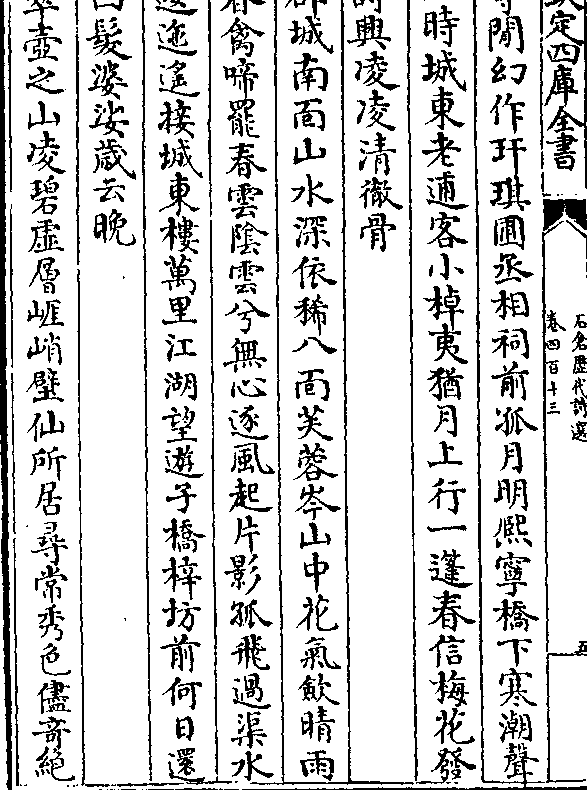 定四庫全書
石倉歷代詩選
卷四百十三
閒幻作玕琪圃丞相祠前孤月明熈寧橋下寒潮聲
時城東老逋客小棹夷猶月上行一蓬春信梅花發
興凌凌清徹骨
城南面山水深依稀八面芙蓉岑山中花氣歛晴雨
禽啼罷春雲陰雲兮無心逐風起片影孤飛過渠水
迤遥接城東樓萬里江湖望遊子橋梓坊前何日還
髮婆娑歲云晚
壺之山凌碧虛層崕峭壁仙所居尋常秀色儘奇絕